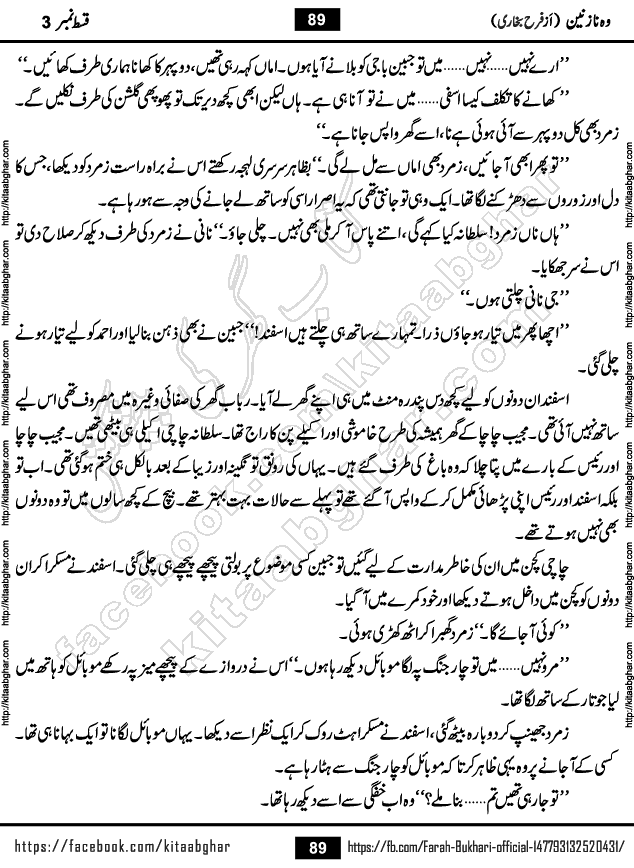 وہ نازنین (از فرح بخاری)
89
قسط نمبر 3
’’ارے نہیں.....نہیں......میں تو جبین باجی کو بلانے آیا ہوں۔ اماں کہہ رہی تھیں، دوپہر کا کھانا ہماری طرف کھائیں۔‘‘
’’کھانے کا تکلف کیسا اسفی......میں نے تو آنا ہی ہے۔ ہاں لیکن ابھی کچھ دیر تک تو پھوپھی گلشن کی طرف نکلیں گے۔
زمرد بھی کل دوپہر سے آئی ہوئی ہے نا، اسے گھر واپس جانا ہے۔‘‘
’’تو پھر ابھی آ جائیں، زمرد بھی اماں سے مل لے گی۔‘‘ بظاہر سرسری لہجہ رکھتے اس نے براہ راست زمرد کو دیکھا، جس کا
دل اور زوروں سے دھڑکنے لگا تھا۔ ایک وہی تو جانتی تھی کہ یہ اصرار اسی کو ساتھ لے جانے کی وجہ سے ہو رہا ہے۔
’’ہاں ناں زمرد! سلطانہ کیا کہے گی، اتنے پاس آ کر ملی بھی نہیں۔ چلی جاؤ۔‘‘ نانی نے زمرد کی طرف دیکھ کر صلاح دی تو
اس نے سر جھکایا۔
’’جی نانی چلتی ہوں۔‘‘
’’اچھا پھر میں تیار ہو جاؤں ذرا۔ تمہارے ساتھ ہی چلتے ہیں اسفند!‘‘ جبین نے بھی ذہن بنا لیا اور احمد کو لیے تیار ہونے
چلی گئی۔
اسفند ان دونوں کو لیے کچھ دس پندرہ منٹ میں ہی اپنے گھر لے آیا۔ رباب گھر کی صفائی وغیرہ میں مصروف تھی اس لیے
ساتھ نہیں آئی تھی۔ مجیب چاچا کے گھر ہمیشہ کی طرح خاموشی اور اکیلے پن کا راج تھا۔ سلطانہ چاچی اکیلی ہی بیٹھی تھیں۔ مجیب چاچا
اور رئیس کے بارے میں پتا چلا کہ وہ باغ کی طرف گئے ہیں۔ یہاں کی رونق تو نگینہ اور زیبا کے بعد بالکل ہی ختم ہو گئی تھی۔ اب تو
بلکہ اسفند اور رئیس اپنی پڑھائی مکمل کر کے واپس آ گئے تھے تو پہلے سے حالات بہت بہتر تھے۔ بیچ کے کچھ سالوں میں تو وہ دونوں
بھی نہیں ہوتے تھے۔
چاچی کچن میں ان کی خاطر مدارت کے لیے گئیں تو جبین کسی موضوع پر بولتی پیچھے پیچھے ہی چلی گئی۔ اسفند نے مسکرا کر ان
دونوں کو کچن میں داخل ہوتے دیکھا اور خود کمرے میں آ گیا۔
’’کوئی آ جائے گا۔‘‘ زمرد گھبرا کر اٹھ کھڑی ہوئی۔
’’مرو نہیں......میں تو چارجنگ پہ لگا موبائل دیکھ رہا ہوں۔‘‘ اس نے دروازے کے پیچھے میز پہ رکھے موبائل کو ہاتھ میں
لیا جو تار کے ساتھ لگا تھا۔
زمرد جھینپ کر دوبارہ بیٹھ گئی، اسفند نے مسکراہٹ روک کر ایک نظر اسے دیکھا۔ یہاں موبائل لگانا تو ایک بہانا ہی تھا۔
کسی کے آ جانے پر وہ یہی ظاہر کرتا کہ موبائل کو چارجنگ سے ہٹا رہا ہے۔
’’تو جا رہی تھیں تم......بنا ملے؟‘‘ وہ اب خفگی سے اسے دیکھ رہا تھا۔
http://kitaabghar.com
http://kitaabghar.com
http://kitaabghar.com
http://kitaabghar.com
http://kitaabghar.com
http://kitaabghar.com
http://kitaabghar.com
http://kitaabghar.com
http://kitaabghar.com
http://kitaabghar.com
http://kitaabghar.com
http://kitaabghar.com
کتاب گھر کی پیشکش
facebook.com/kitaabghar
kitaabghar.com
https://facebook.com/kitaabghar
89
https://fb.com/Farah-Bukhari-official-147793132520431/